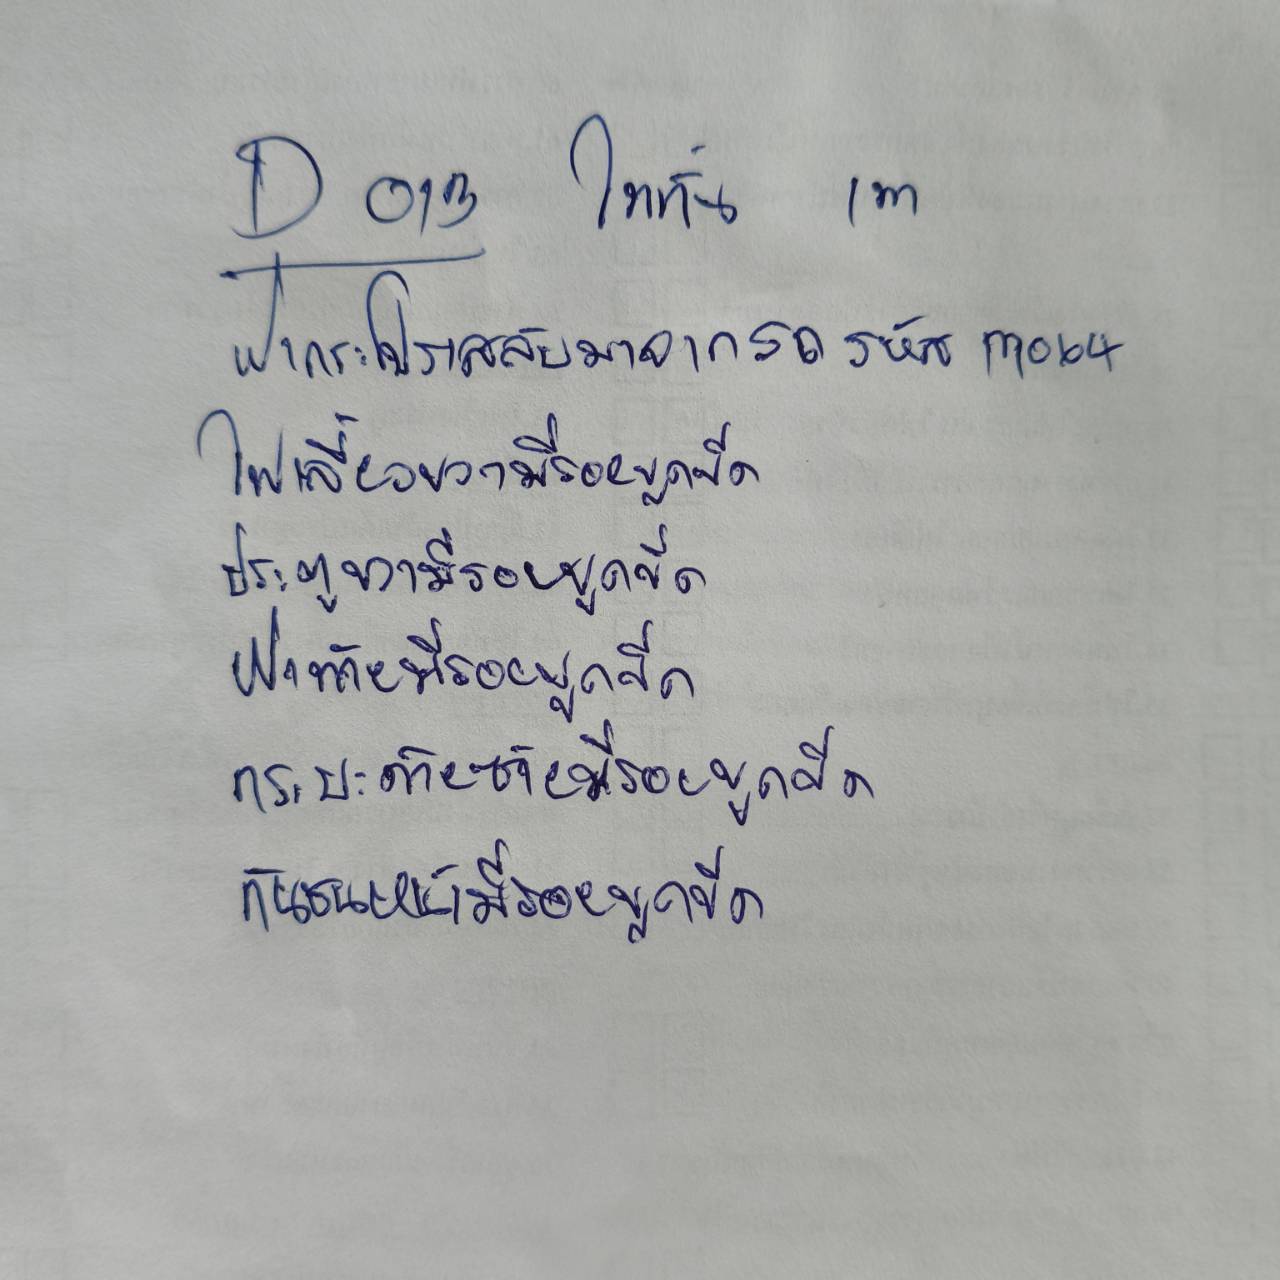 D 013 ไททั่น เทา
ฝากระโปรงสลับมาจากรถ รหัส M064
ไฟเลี้ยวขวามีรอยขูดขีด
ประตูขวามีรอยขูดขีด
ฝาท้ายมีรอยขูดขีด
กระบะด้ายซ้ายมีรอยขูดขีด
กันชนหน้ามีรอยขูดขีด